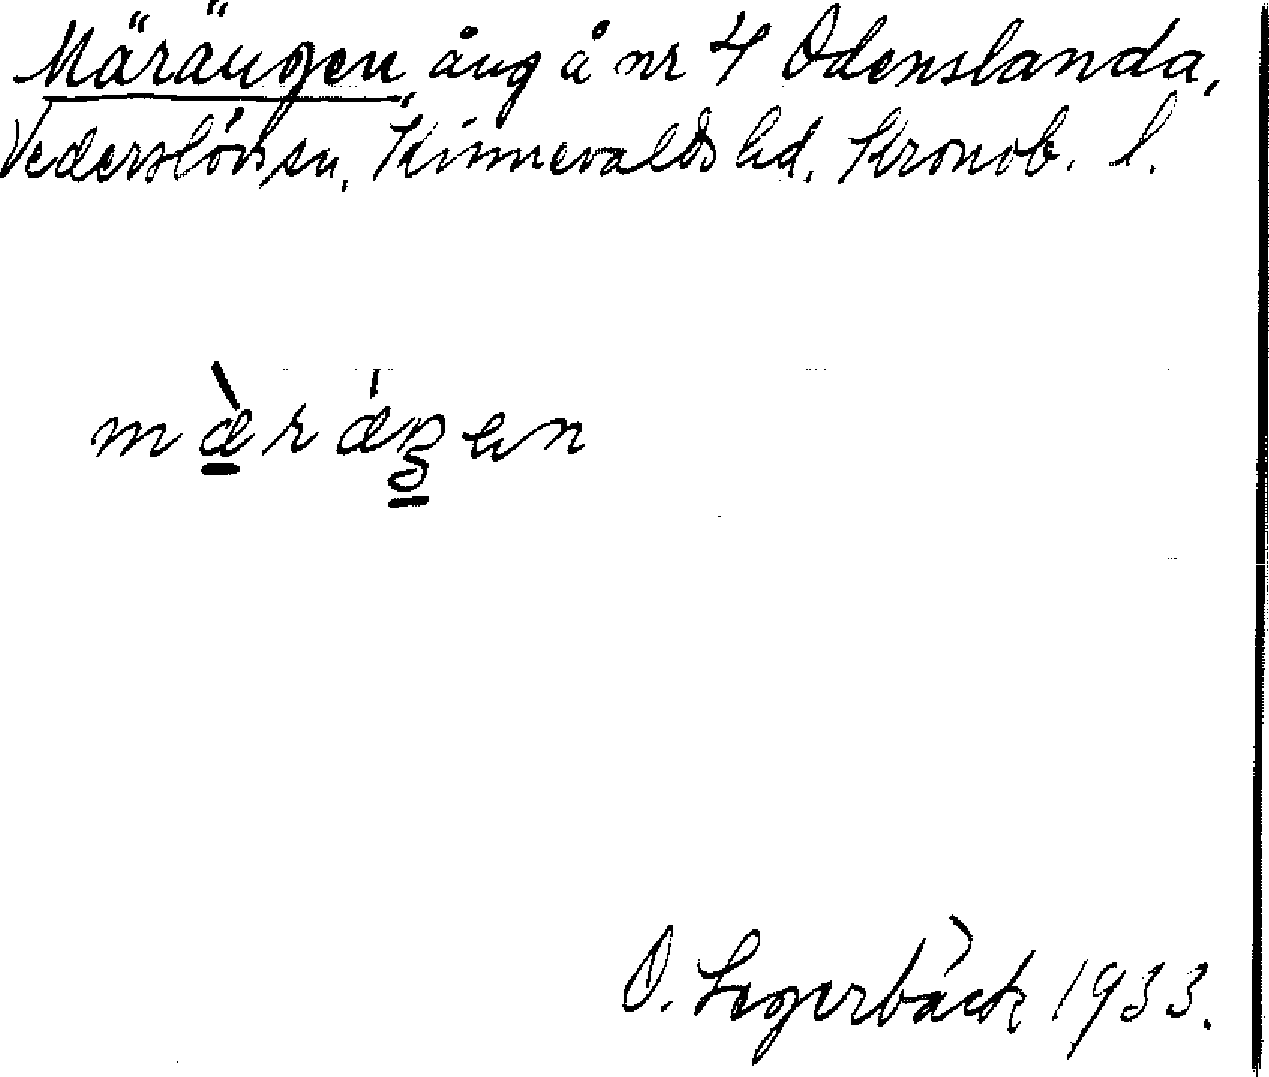 Märängen, äng å nr 4 Odenslanda,
Vederslövs sn, Kinnevalds hd. Kronob. l.
mæ̠̀ræ̍ŋ̠en
O. Legerbäck 1933.